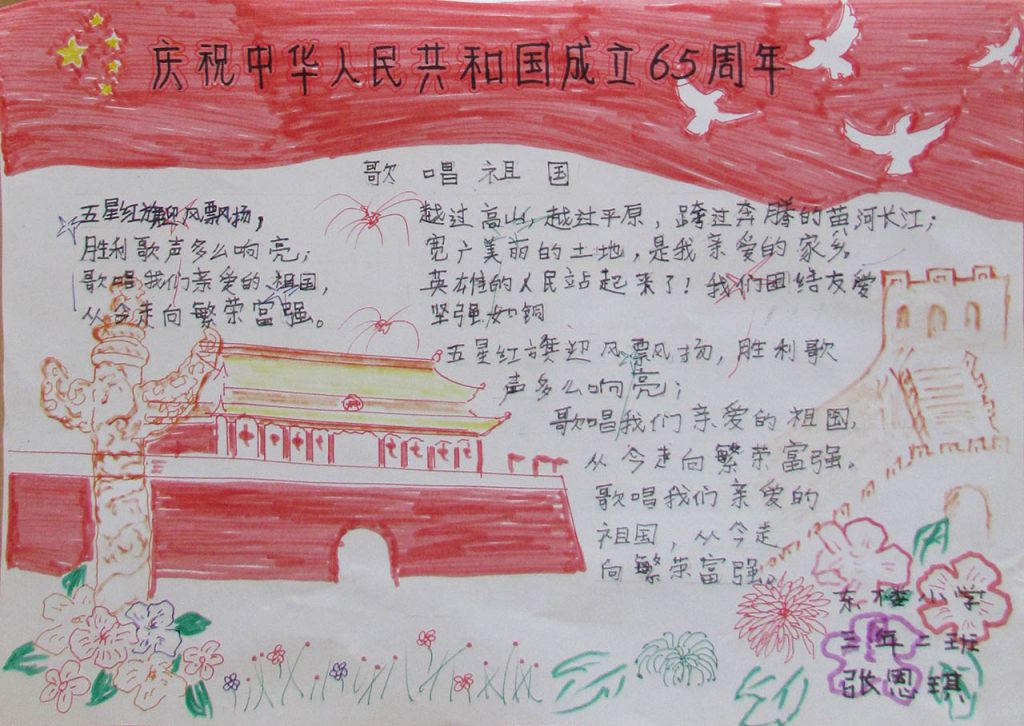 庆祝中华人民共和国成立65周年
歌唱祖国
五星红旗迎风飘扬，
胜利歌声多么响亮；
歌唱我们亲爱的祖国，
从今走向繁荣富强。
越过高山，越过平原，跨过奔腾的黄河长江；
宽广美丽的土地，是我亲爱的家乡。
英雄的人民站起来了！我们团结友爱
坚强如钢
五星红旗迎风飘扬，胜利歌
声多么响亮；
歌唱我们亲爱的祖国，
从今走向繁荣富强。
歌唱我们亲爱的
祖国，从今走
向繁荣富强。
东楼小学
三年二班
张恩琪